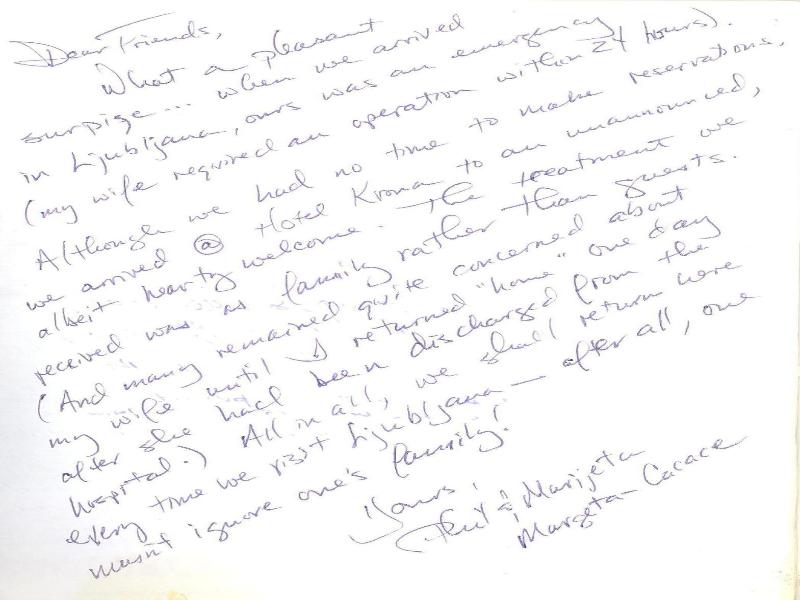 Dear Friends,
What a pleasant
surpise... when we arrived
in Ljubljana, ours was an emergency
(my wife required an operation within 24 hours).
Although we had no time to make reservations,
we arrived @ Hotel Krona to an unannounced,
albeit hearty welcome. The treatment we
received was as family rather than guests.
(And many remained quite concerned about
my wife until I returned "home" one day
after she had been discharged from the
hospital.) All in all, we shall return here
every time we visit Ljubljana — after all, one
musn't ignore one's family!
Yours,
Phil & Marijeta
Margeta-Cacace